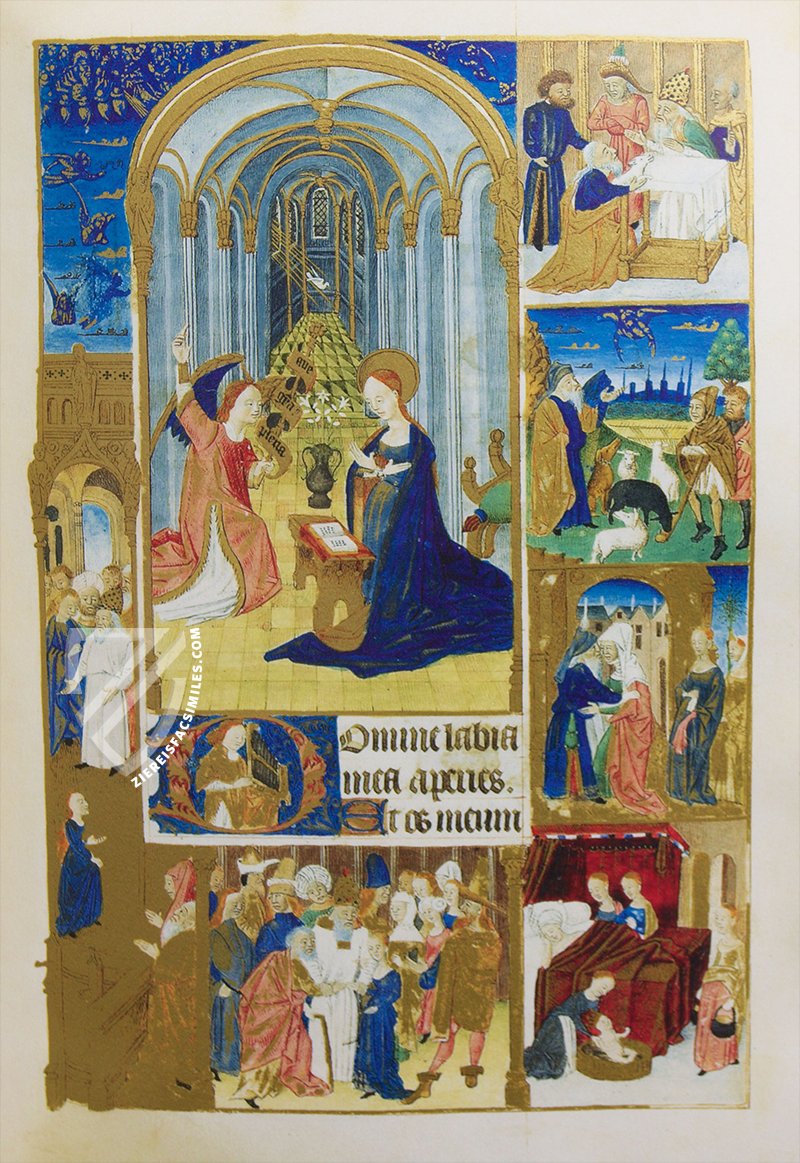 aue
gra
plena
Domine labia
mea aperies.
Et os meum
ZIEREISFACSIMILES.COM